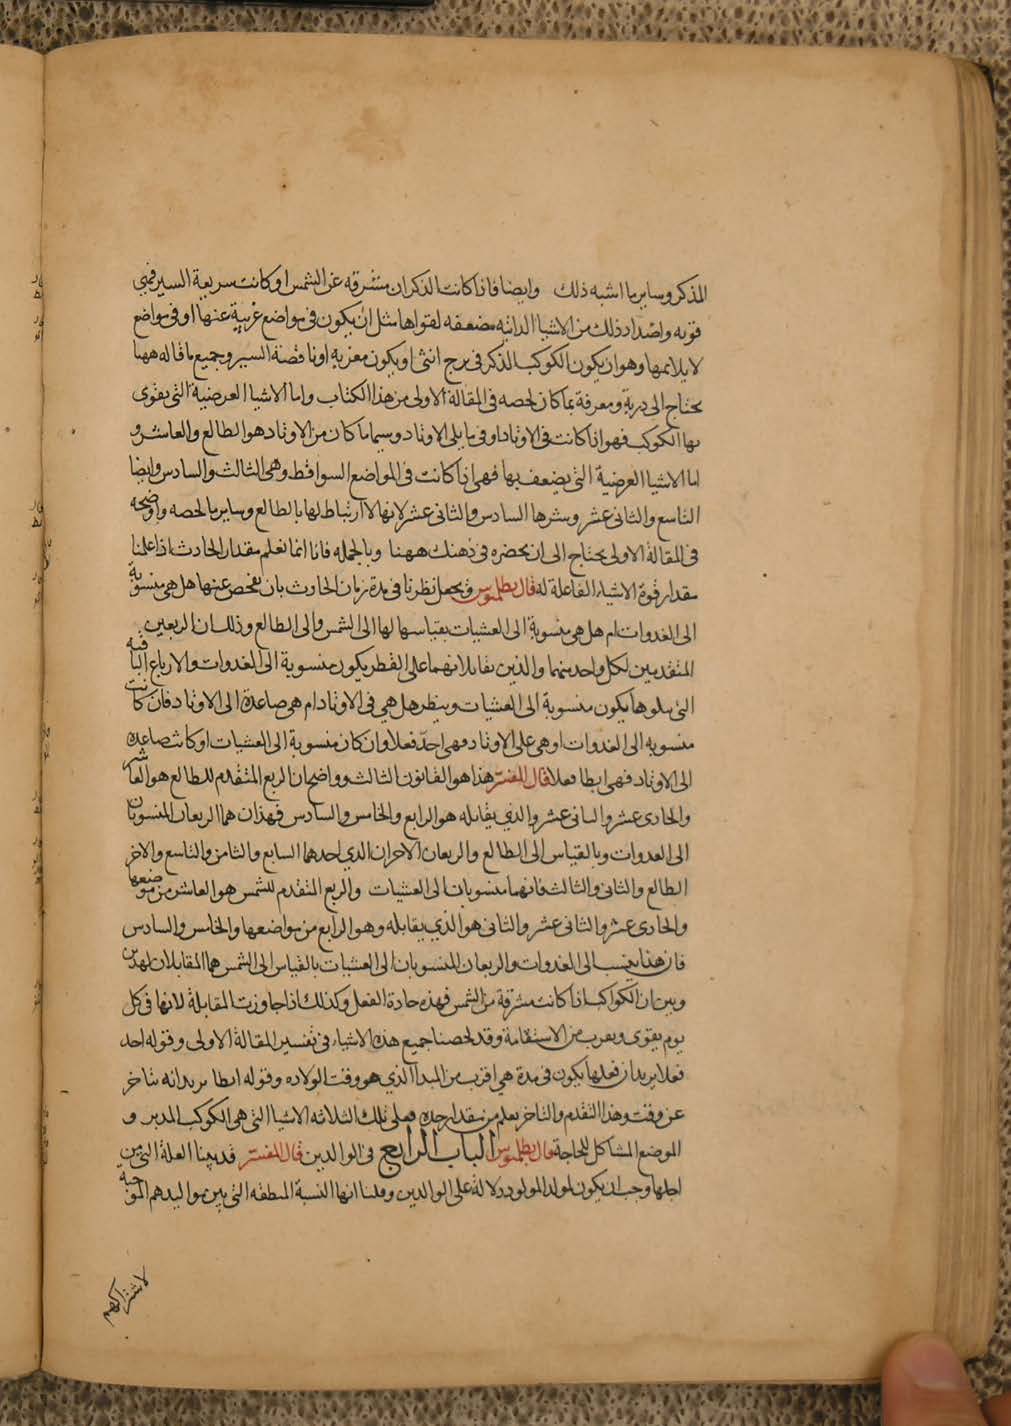 المذكر وساير ما اشبه ذلك وايضا فاذا كانت الذكران مشرقه عن الشمس او كانت سريعة السير فهي
قويه واضداد ذلك من الاشيا الذاتيه مضعفه لقواها مثل ان يكون في مواضع غريبة عنها او في مواضع
لا يلايمها وهو ان يكون الكوكب الذكر في برج انثى او يكون مغربه او ناقصة السير وجميع ما قاله ههنا
يحتاج الى دربة ومعرفة بما كان لخصه في المقالة الاولى من هذا الكتاب واما الاشيا العرضية التي يقوى
بها الكوكب فهو اذا كانت في الاوتاد او في ما يلي الاوتاد وسيما ما كان من الاوتاد هو الطالع والعاشر و
اما الاشيا العرضية التي يضعف بها فهي اذا كانت في المواضع السواقط وهي الثالث والسادس وايضا
التاسع والثاني عشر وشرها السادس والثاني عشر لانها لا ارتباط لها بالطالع وساير ما لخصه واوضحه
في المقالة الاولى يحتاج الى ان يحضره في ذهنك ههنا وبالجمله فانا انما نعلم مقدار الحادث اذا علمنا
مقدار قوة الاشياء الفاعلة له قال بطلميوس ويجعل نظرنا في مدة زمان الحادث بان نفحص عنها هل هي منسوبة
الى الغدوات ام هل هي منسوبة الى العشيات بقياسها لها الى الشمس والى الطالع وذلك ان الربعين
المتقدمين لكل واحد منهما والذين يقابلانهما على القطر يكون منسوبة الى الغدوات والارباع الباقيه
التي يتلوها يكون منسوبة الى العشيات وينظر هل هي في الاوتاد ام هي صاعدة الى الاوتاد فان كانت
منسوبه الى الغدوات او هي على الاوتاد فهي احدّ فعلا وان كان منسوبة الى العشيات او كانت صاعده
الى الاوتاد فهي ابطا فعلا قال المفسر هذا هو القانون الثالث وواضح ان الربع المتقدم للطالع هو العاشر
والحادى عشر والثاني عشر والذي يقابله هو الرابع والخامس والسادس فهذان هما الربعان المنسوبان
الى الغدوات وبالقياس الى الطالع والربعان الاخران الذي احدهما السابع والثامن والتاسع والاخر
الطالع والثاني والثالث فانهما منسوبان الى العشيات والربع المتقدم للشمس هو العاشر من موضعها
والحادى عشر والثاني عشر والثاني هو الذي يقابله وهو الرابع من مواضعها والخامس والسادس
فان هذا ينسب الى الغدوات والربعان المنسوبان الى العشيات بالقياس الى الشمس هما المقابلان لهذين
وبين ان الكواكب اذا كانت مشرقة من الشمس فهذه حادة الفعل وكذلك اذا جاوزت المقابلة لانها في كل
يوم يقوى ويقرب من الاستقامة وقد لخصنا جميع هذه الاشياء في تفسير المقالة الاولى وقوله احد
فعلا يريد ان فعلها يكون في مدة هي اقرب من المبدا الذي هو وقت الولاده وقوله ابطا يريد انه يتاخر
عن وقت وهذا التقدم والتاخر يعلم من مقدار حده فعلى تلك الثلاثه الاشيا التي هي الكوكب المدبر و
الموضع المشاكل للحاجة قال بطلميوس الباب الرابع في الوالدين قال المفسر قد بينا العلة التي من
اجلها وجب ان يكون لمولد المولود دلالة على الوالدين وقلنا انها النسبة المنطقه التي بين مواليدهم الموجبه
لاشتراكهم